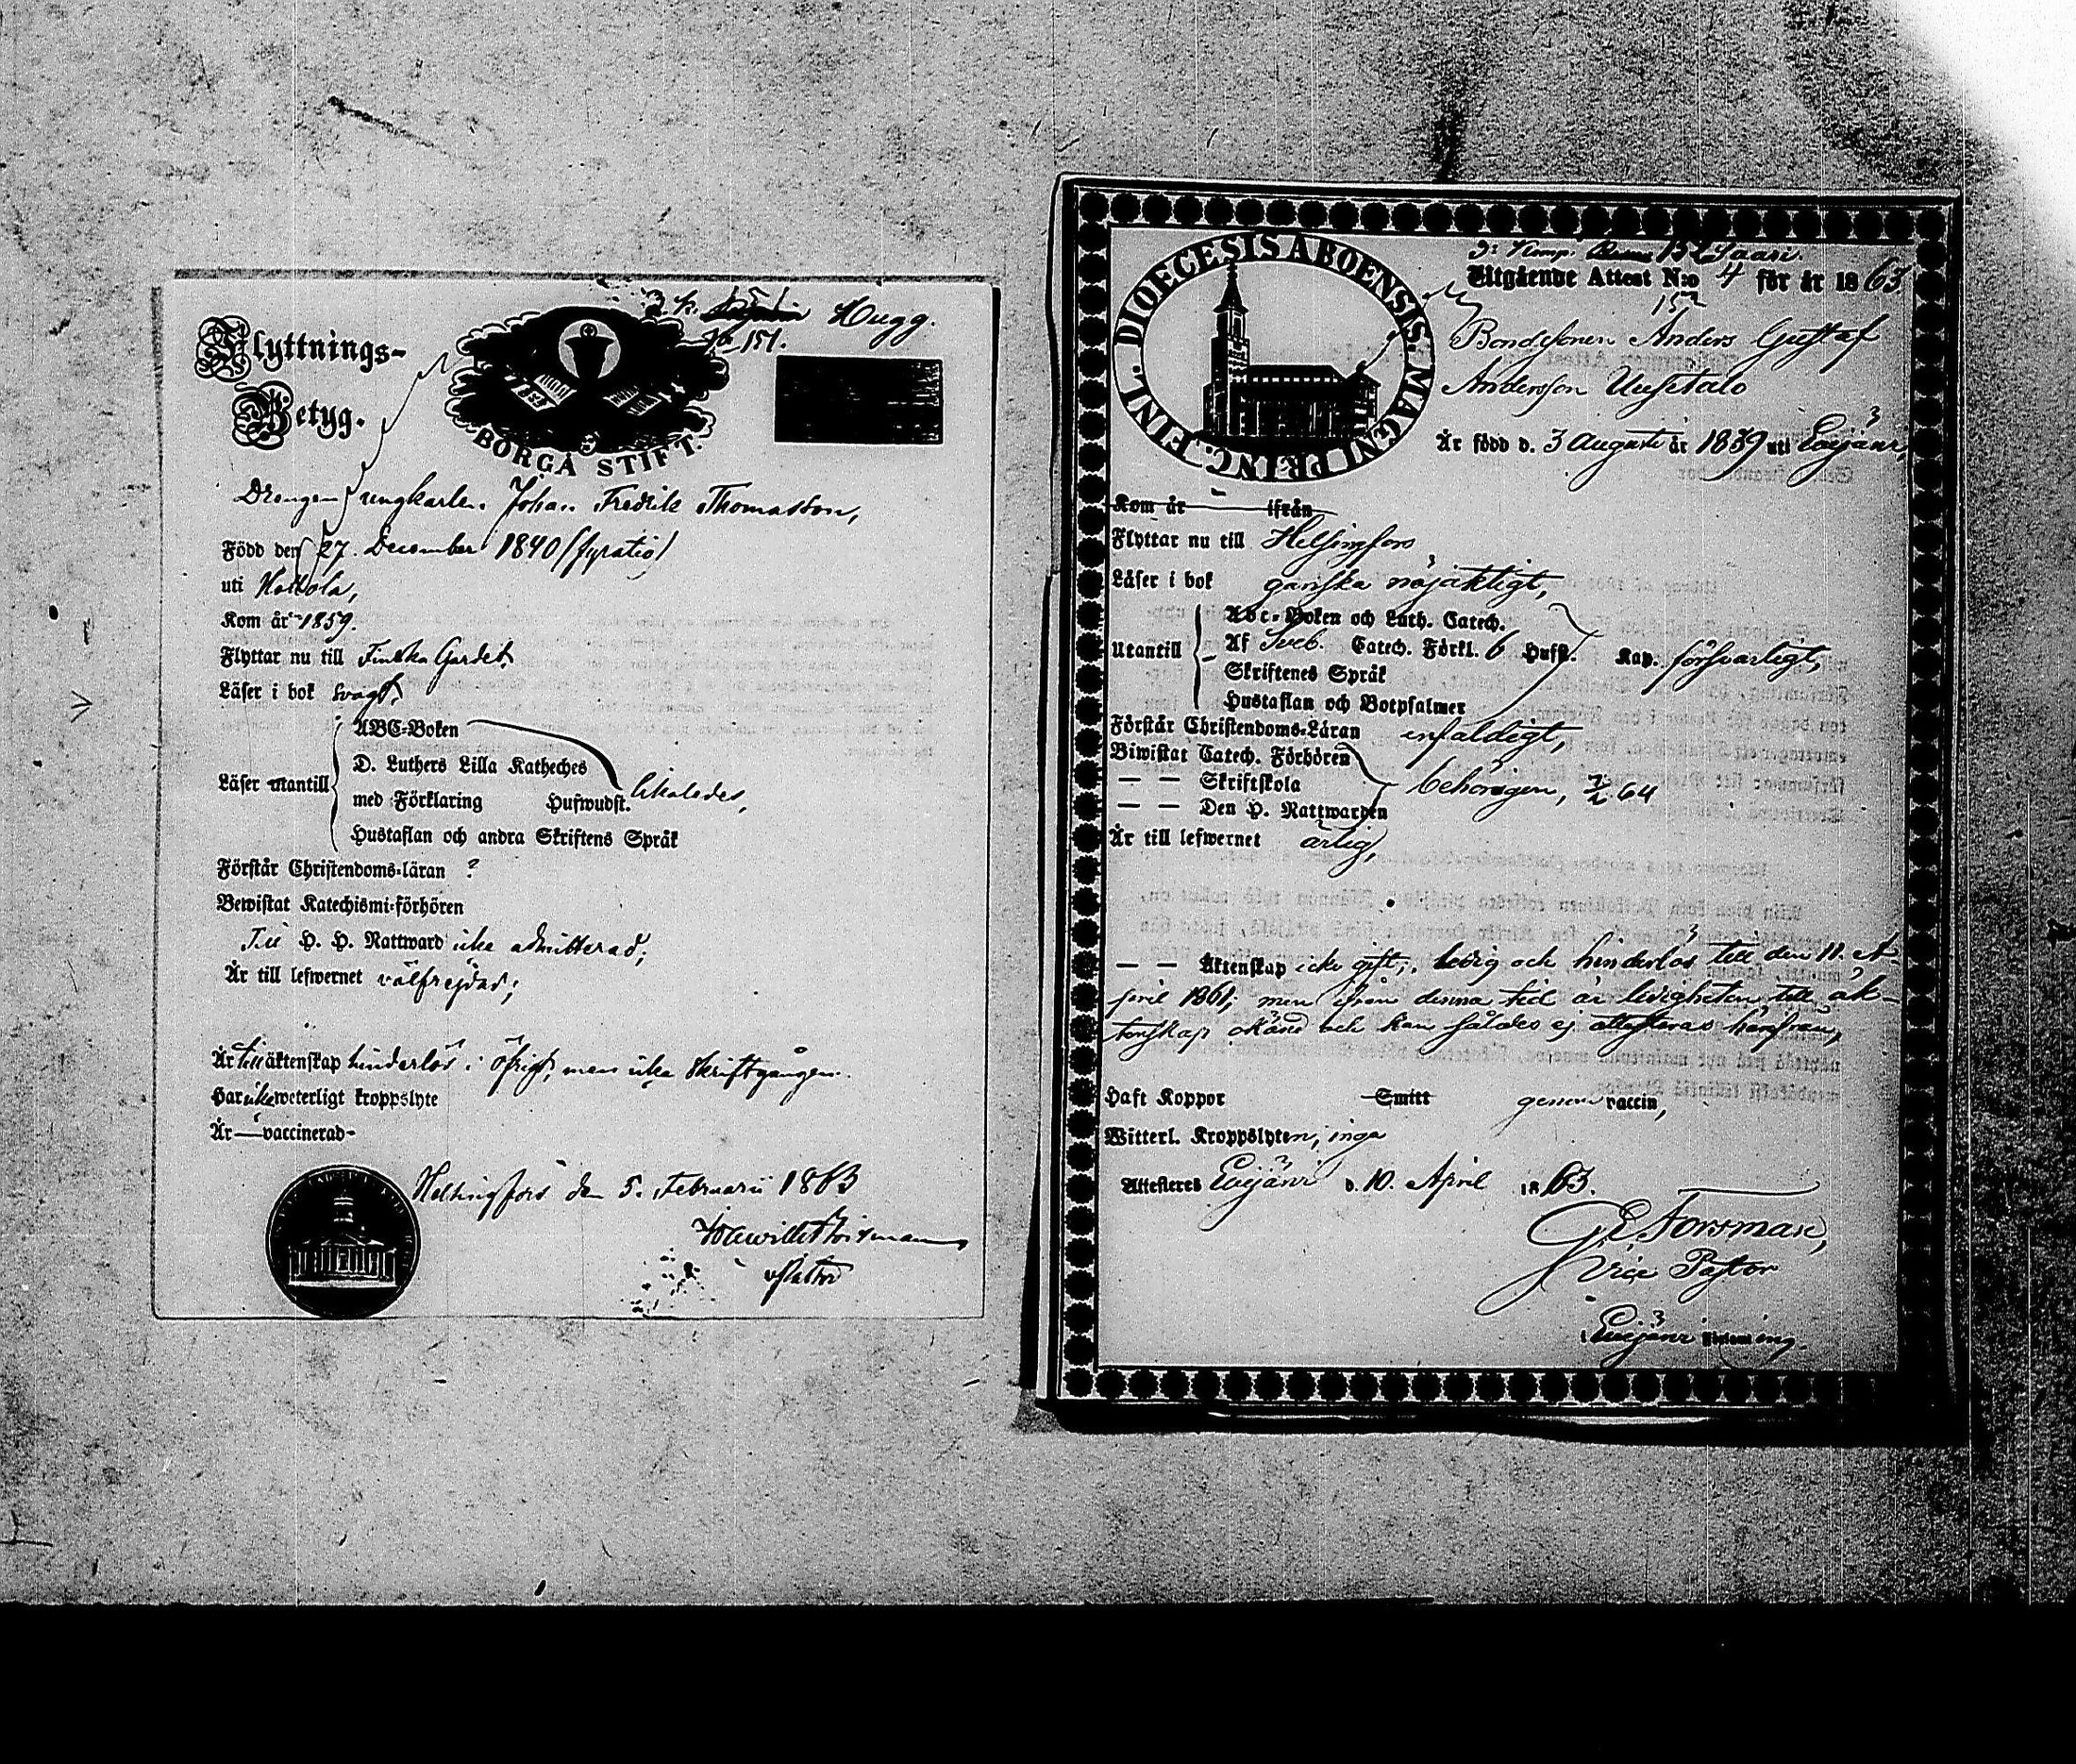 Flyttnings-
Betyg.
BORGÅ STIFT.
Hugg.
No 151.
Drengen ungkarlen Johan Fredrik Thomasson,
Född den 27. December 1840 (fyratio)
uti Hollola,
Kom år 1859.
Flyttar nu till Finska Gardet
Läser i bok svagt,
Läser utantill
ABC-Boken
D. Luthers Lilla Katheches
med Förklaring Hufwudst. likaledes,
Hustaflan och andra Skriftens Språk
Förstår Christendoms-läran ?
Bewistat Katechismi-förhören
Till H. H. Nattward icke admitterad;
Är till lefwernet välfrejdad;
Är till äktenskap hinderlös i öfrigt, men icke skriftgången.
Har icke weterligt kroppslyte
Är — vaccinerad-
Helsingfors den 5. Februarii 1863
DIOECESIS ABOENSIS MAGNI PRINC. FINL.
Saari.
Utgående Attest N:o 4 för år 1863
152
Bondesonen Anders Gustaf
Andersson Uusitalo
Är född d. 3 Augusti år 1839 uti Euijänvi,
Kom år — ifrån
Flyttar nu till Helsingfors
Läser i bok ganska nöjaktigt,
Utantill
Abc-Boken och Luth. Catech.
Af Sveb. Catech. Förkl. 6 Hufst. Kap. försvarligt,
Skriftenes Språk
Hustaflan och Botpsalmer
Förstår Christendoms-Läran enfaldigt,
Biwistat Catech. Förhören
— — Skriftskola behörigen, 7/2 64
— — Den H. Nattwarden
Är till lefwernet ärlig,
— — Äktenskap icke gift, ledig och hinderlös till den 11. A-
pril 1861; men ifrån denna tid är ledigheten till äk-
tenskap okänd och kan således ej attesteras härifrån,
Haft Koppor Smitt genom vaccin,
Witterl. Kroppslyten, inga
Attesteras d. 10. April 1863.
G E Forsman,
Vice Pastor